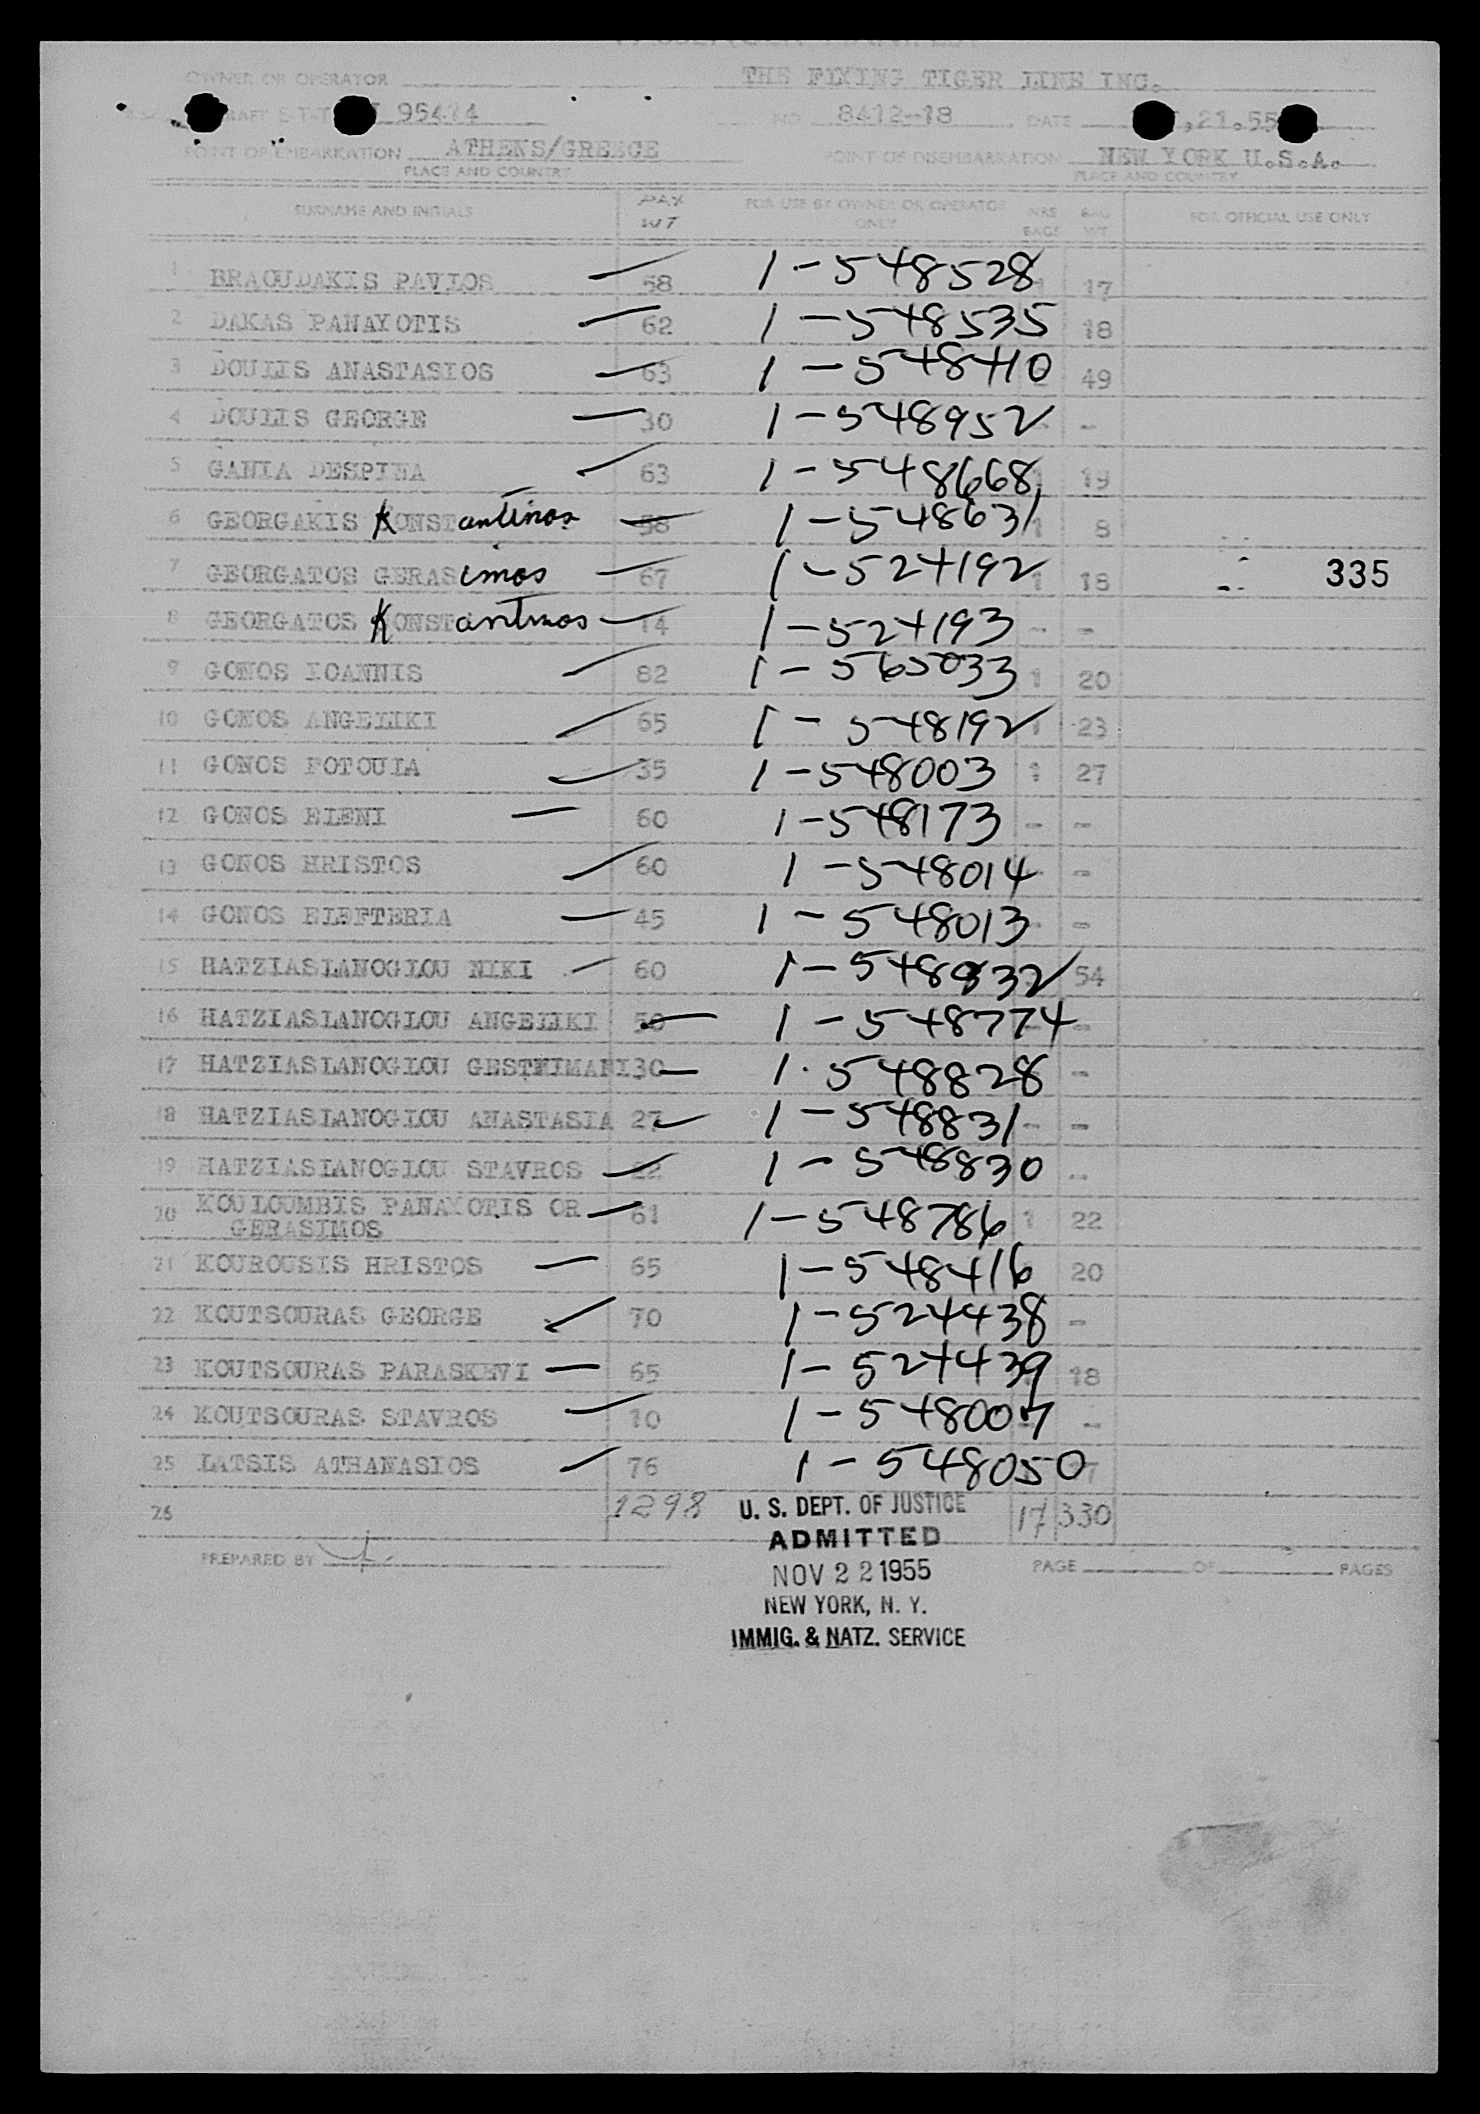 PASSENGER MANIFEST
OWNER OR OPERATOR THE FLYING TIGER LINE INC.
95414 NO 8412-18 DATE ,21.55
POINT OF EMBARKATION ATHENS/GREECE POINT OF DISEMBARKATION NEW YORK U.S.A.
PLACE AND COUNTRY PLACE AND COUNTRY
SURNAME AND INITIALS PAX WT FOR USE BY OWNER OR OPERATOR ONLY NRS BAGS BAG WT FOR OFFICIAL USE ONLY
1 BRAOUDAKIS PAVLOS 58 1-548528 17
2 DAKAS PANAYOTIS 62 1-548535 18
3 DOULIS ANASTASIOS 63 1-548410 49
4 DOULIS GEORGE 30 1-548952 -
5 GANIA DESPINA 63 1-548668 1 19
6 GEORGAKIS Konstantinos 58 1-548631 1 8
7 GEORGATOS GERASimos 67 1-524192 1 18 335
8 GEORGATOS Konstantinos 14 1-524193 - -
9 GONOS IOANNIS 82 1-565033 1 20
10 GONOS ANGELIKI 65 1-548192 1 23
11 GONOS FOTOULA 35 1-548003 1 27
12 GONOS ELENI 60 1-548173 - -
13 GONOS HRISTOS 60 1-548014 -
14 GONOS ELEFTERIA 45 1-548013 -
15 HATZIASLANOGLOU NIKI 60 1-548832 54
16 HATZIASLANOGLOU ANGELIKI 50 1-548774 -
17 HATZIASLANOGLOU GESTHIMANI 30 1.548828 -
18 HATZIASLANOGLOU ANASTASIA 27 1-548831 - -
19 HATZIASLANOGLOU STAVROS 22 1-548830 -
20 KOULOUMBIS PANAYOTIS OR 61 1-548786 1 22
GERASIMOS
21 KOUROUSIS HRISTOS 65 1-548416 20
22 KOUTSOURAS GEORGE 70 1-524438 -
23 KOUTSOURAS PARASKEVI 65 1-524439 18
24 KOUTSOURAS STAVROS 10 1-548007 -
25 LATSIS ATHANASIOS 76 1-548050
26 1298 17 330
U. S. DEPT. OF JUSTICE
ADMITTED
PREPARED BY PAGE OF PAGES
NOV 22 1955
NEW YORK, N. Y.
IMMIG. & NATZ. SERVICE